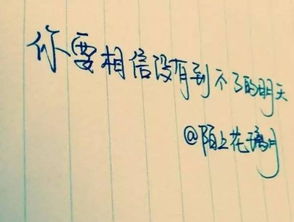 你要相信没有到不了的明天
@陌上花璃月